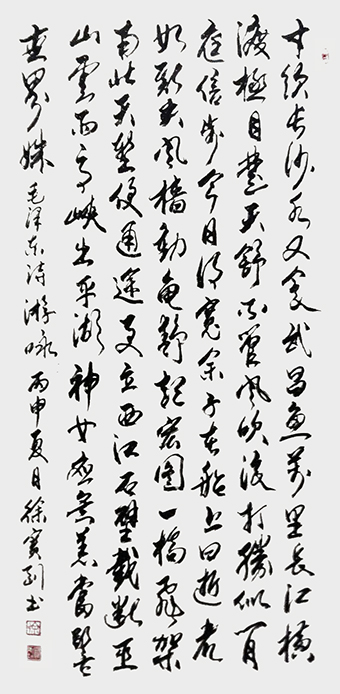 才饮长沙水又食武昌鱼萬里长江横
渡極目楚天舒不管风吹浪打勝似闲
庭信步今日得寬余子在船上曰逝者
如斯夫风樯動龟静起宏图一橋飞架
南北天塹变通途更立西江石壁截斷巫
山雲雨高峡出平湖神女應無恙當驚
世界殊毛泽东诗游咏丙申夏日徐寶列书